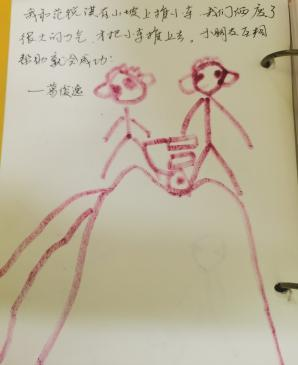 我和范锐淇在小坡上推小车,我们俩废了
很大的力气,才把小车推上去。小朋友互相
帮助就会成功!
——葛俊逸